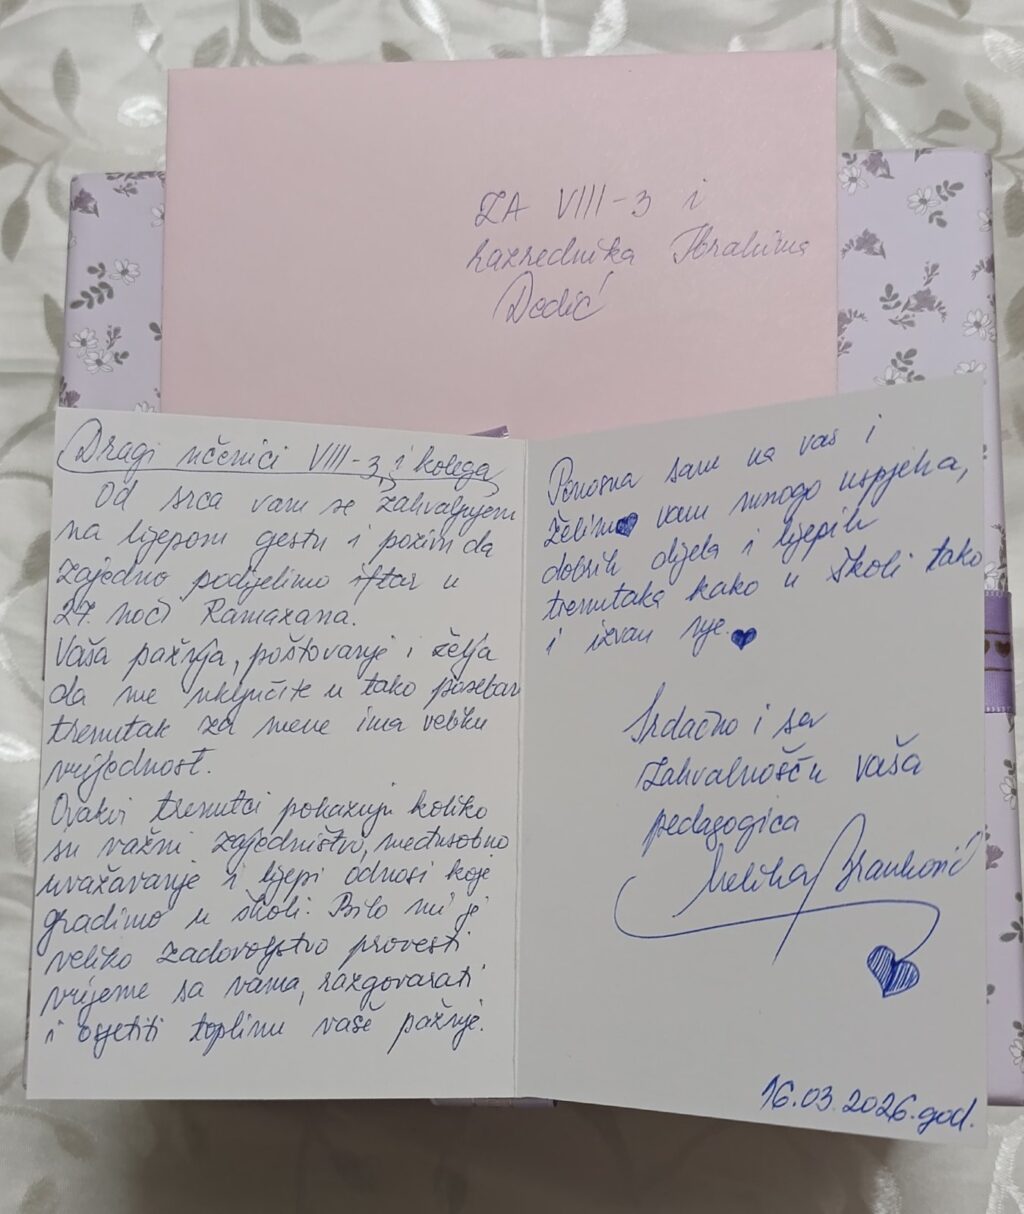 ZA VIII-3 i
razrednika Ibrahima
Dedić
Dragi učenici VIII-3, i kolega
Od srca vam se zahvaljujem
na lijepom gestu i poziv da
zajedno podijelimo iftar u
27. noći Ramazana.
Vaša pažnja, poštovanje i želja
da me uključite u tako poseban
trenutak za mene ima veliku
vrijednost.
Ovakvi trenutci pokazuju koliko
su važni zajedništvo, međusobno
uvažavanje i lijepi odnosi koje
gradimo u školi. Bilo mi je
veliko zadovoljstvo provesti
vrijeme sa vama, razgovarati
i osjetiti toplinu vaše pažnje.
Ponosna sam na vas i
želim vam mnogo uspjeha,
dobrih dijela i lijepih
trenutaka kako u školi tako
i izvan nje.
Srdačno i sa
zahvalnošću vaša
pedagogica
Melika Branković
16.03.2026.god.